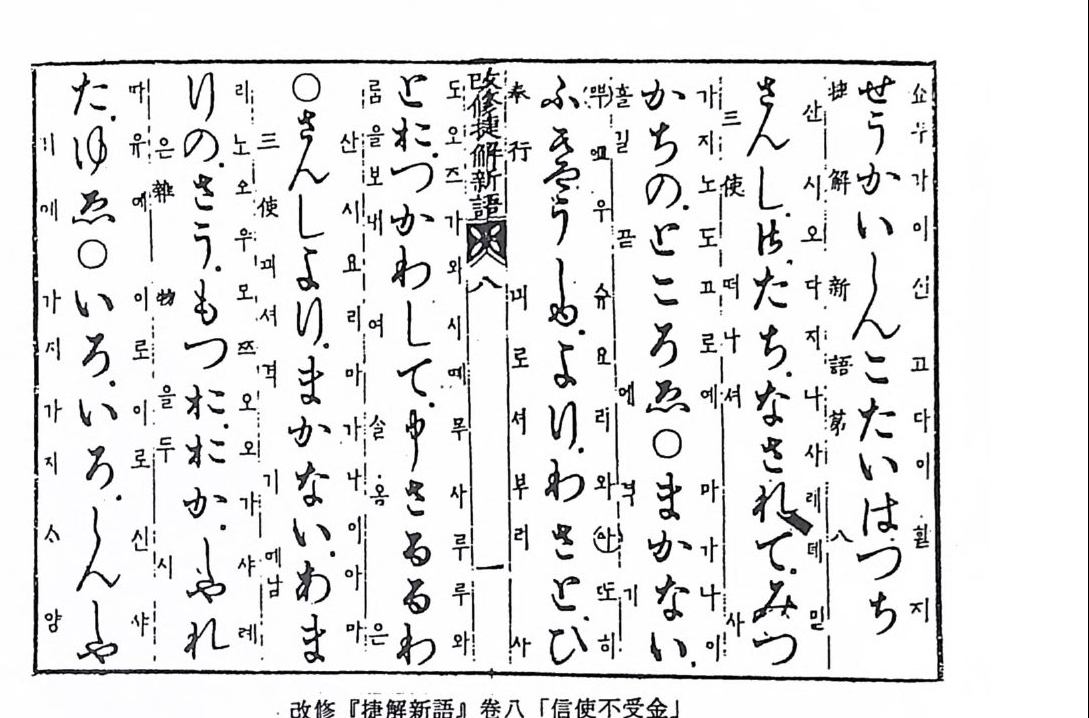 쇼우가이신고다이 지
せうかいしんこたいはつち
捷解新語第八
산시오다지나사례데밀
さんしは.たち.なされて.みつ
三使 떠나셔 사
가지노도꼬로예 마가나이
かちの.ところゑ○まかない.
흘길 끝에 격기
우슈요리와 또히
ふきやうしゆ.より.わさとひ
奉行 끠로셔부러 사
改修捷解新語 八 一
도오즈가와시떼무사루루와
とお.つかわして.申さるるわ
룸을보내여 솔옴은
산시요리마가나이아마
○さんしより.まかない.あま
三使끠셔 격기 예남
리노오우모쯔오오가샤례
りの.さう.もつおおか.しやれ
은雜物을두시
따유예 이로이로신샤
た.ゆゑ○いろ.いろ.しんしや
가지가지 양
改修『捷解新語』卷八「信使不受金」